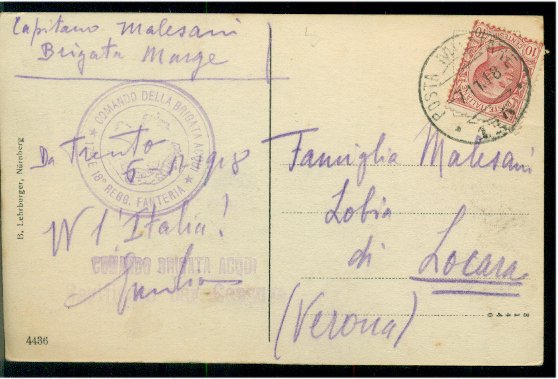 Capitano Malesani
Brigata Marge
COMANDO DELLA BRIGATA ACQUI
18° REGG. FANTERIA
Da Trento
6 11 918
W l'Italia!
COMANDO BRIGATA ACQUI
Giulio
B. Lehrburger, Nürnberg
4436
POSTA
10
Famiglia Malesani
Lobia
di Locara
(Verona)